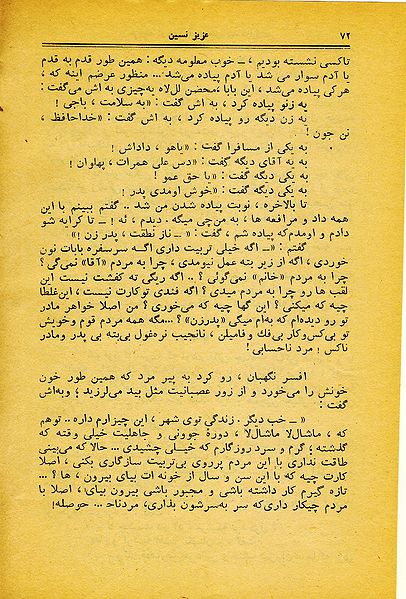 ۷۲ عزیز نسین
تاکسی نشسته بودیم ، ــ خوب معلومه دیگه : همین طور قدم به قدم
یا آدم سوار می شد یا آدم پیاده می‌شد... منظور عرضم اینه که ،
هرکی پیاده می‌شد ، این بابا ،محضن لل‌لاه یه‌چیزی به اش می‌گفت :
یه زنو پیاده کرد ، به اش گفت : «به سلامت ، باجی !
یه زن دیگه رو پیاده کرد ، به اش گفت : «خداحافظ ،
نن جون !
به یکی از مسافرا گفت : «یاهو ، داداش !
به یه آقای دیگه گفت : «دس علی همرات ، پهلوان !
به یکی دیگه گفت : «یا حق عمو !
به یکی دیگه گفت : «خوش اومدی پدر !
تا بالاخره ، نوبت پیاده شدن من شد .. گفتم ببینم با این
همه داد و مرافعه ها ، به من‌چی میگه . دیدم ، نه ! ــ تا کرایه شو
دادم و اومدم‌که پیاده شم ، گفت : «ــ ناز نطقت ، پدر زن !»
گفتم : «ــ اگه خیلی تربیت داری اگه سرسفره بابات نون
خوردی ، اگه از زیر بته عمل نیومدی ، چرا به مردم «آقا» نمی‌گی ؟
چرا به مردم «خانم» نمی‌گوئی ؟ .. اگه ریگی ته کفشت نیست این
لقب ها رو چرا به مردم میدی ؟ اگه فندی تو کارت نیست ، این‌غلطا
چیه که میکنی ؟ این گها چیه که می‌خوری ؟ من اصلا خواهر مادر
تو رو دیده‌ام که به‌ام میگی «پدرزن» ؟ ...مگه همه مردم قوم وخویش
تو بی‌کس‌وکار بی‌فك وفامیلن ، نانجیب نره‌غول بی‌بته بی پدر ومادر
ناکس ! مرد ناحسابی !
افسر نگهبان ، رو کرد به پیر مرد که همین طور خون
خونش را می‌خورد و از زور عصبانیت مثل بید می‌لرزید ؛ وبه‌اش
گفت :
« ــ خب دیگر . زندگی توی شهر ، این چیزارم داره .. توهم
که ، ماشال‌لا ماشال‌لا ، دوره جوونی و جاهلیت خیلی وقته که
گذشته ؛ گرم و سرد روزگارم که خیلی چشیدی ... حالا که می‌بینی
طاقت نداری با این مردم پرروی بی‌تربیت سازگاری بکنی ، اصلا
کارت چیه که با این سن و سال از خونه ات بیای بیرون ، ها ؟ ...
تازه گیرم کار داشته باشی و مجبور باشی بیرون بیای ، اصلا با
مردم چیکار داری‌که سر به‌سرشون بذاری، مردناحـ ... حوصله!